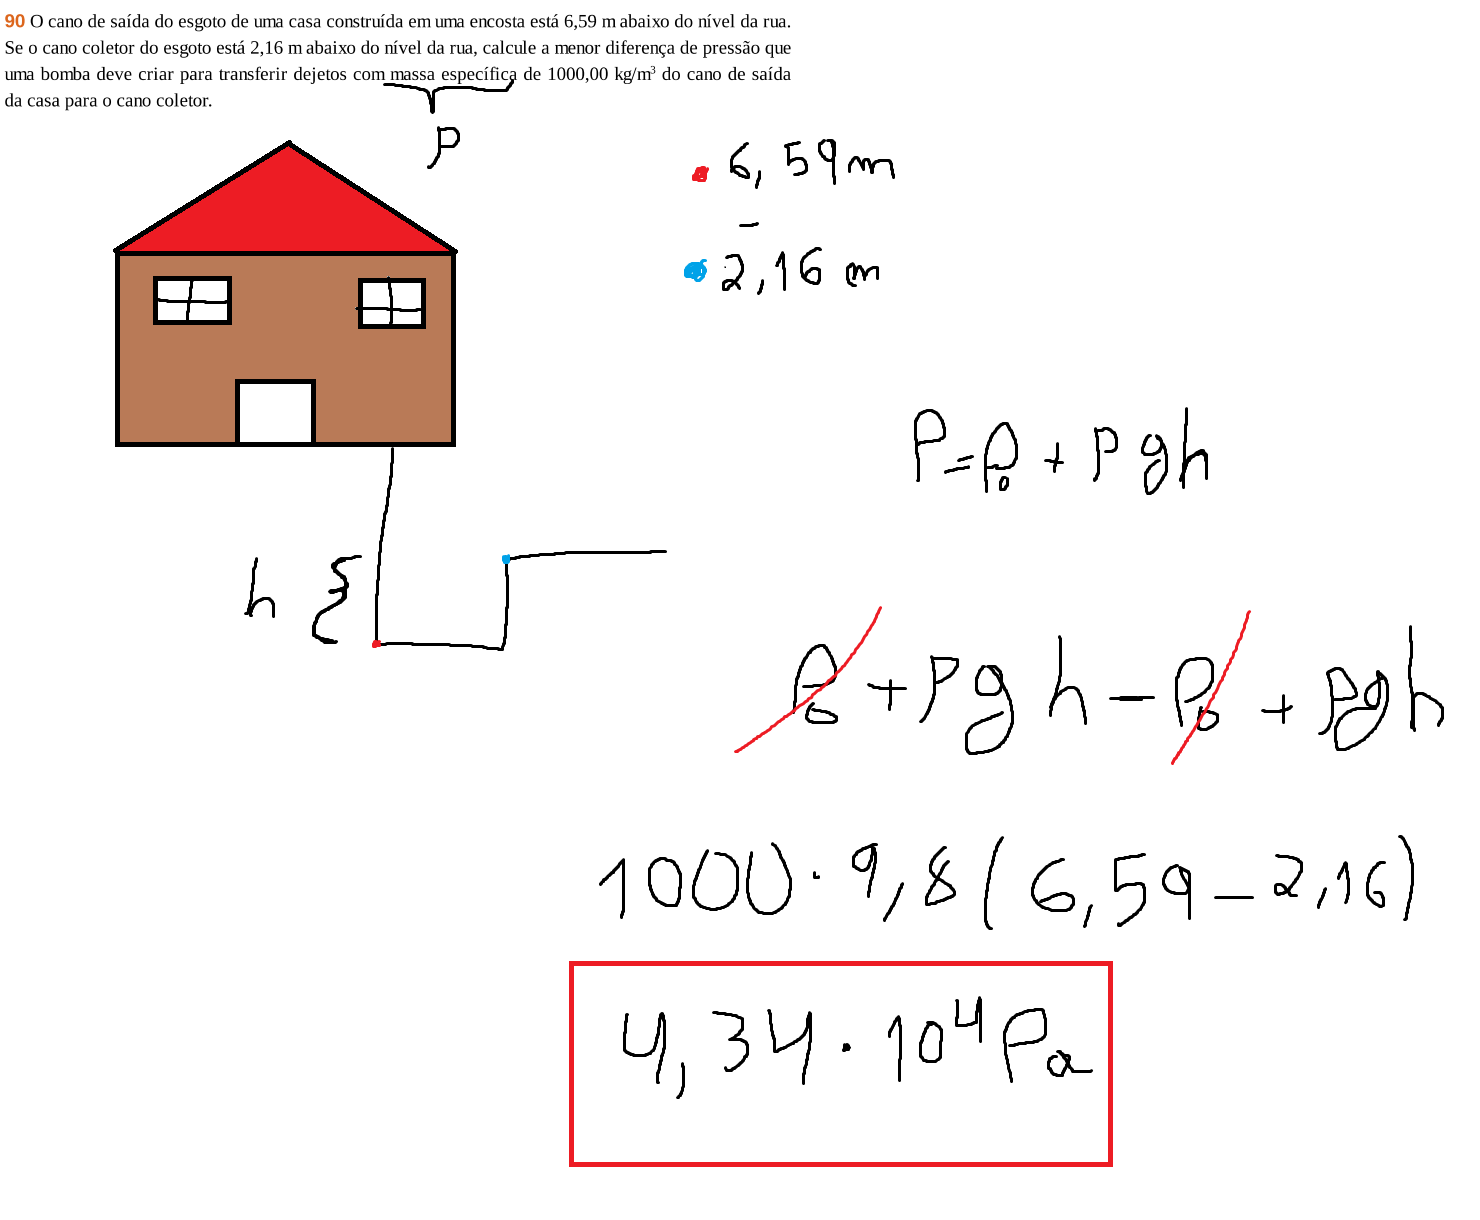 90 O cano de saída do esgoto de uma casa construída em uma encosta está 6,59 m abaixo do nível da rua.
Se o cano coletor do esgoto está 2,16 m abaixo do nível da rua, calcule a menor diferença de pressão que
uma bomba deve criar para transferir dejetos com massa específica de 1000,00 kg/m³ do cano de saída
da casa para o cano coletor.
p
6,59m
-
2,16 m
P=P₀ + pgh
h {
P₀ + pgh - P₀ + pgh
1000 · 9,8 (6,59 - 2,16)
4,34 · 10⁴ Pa